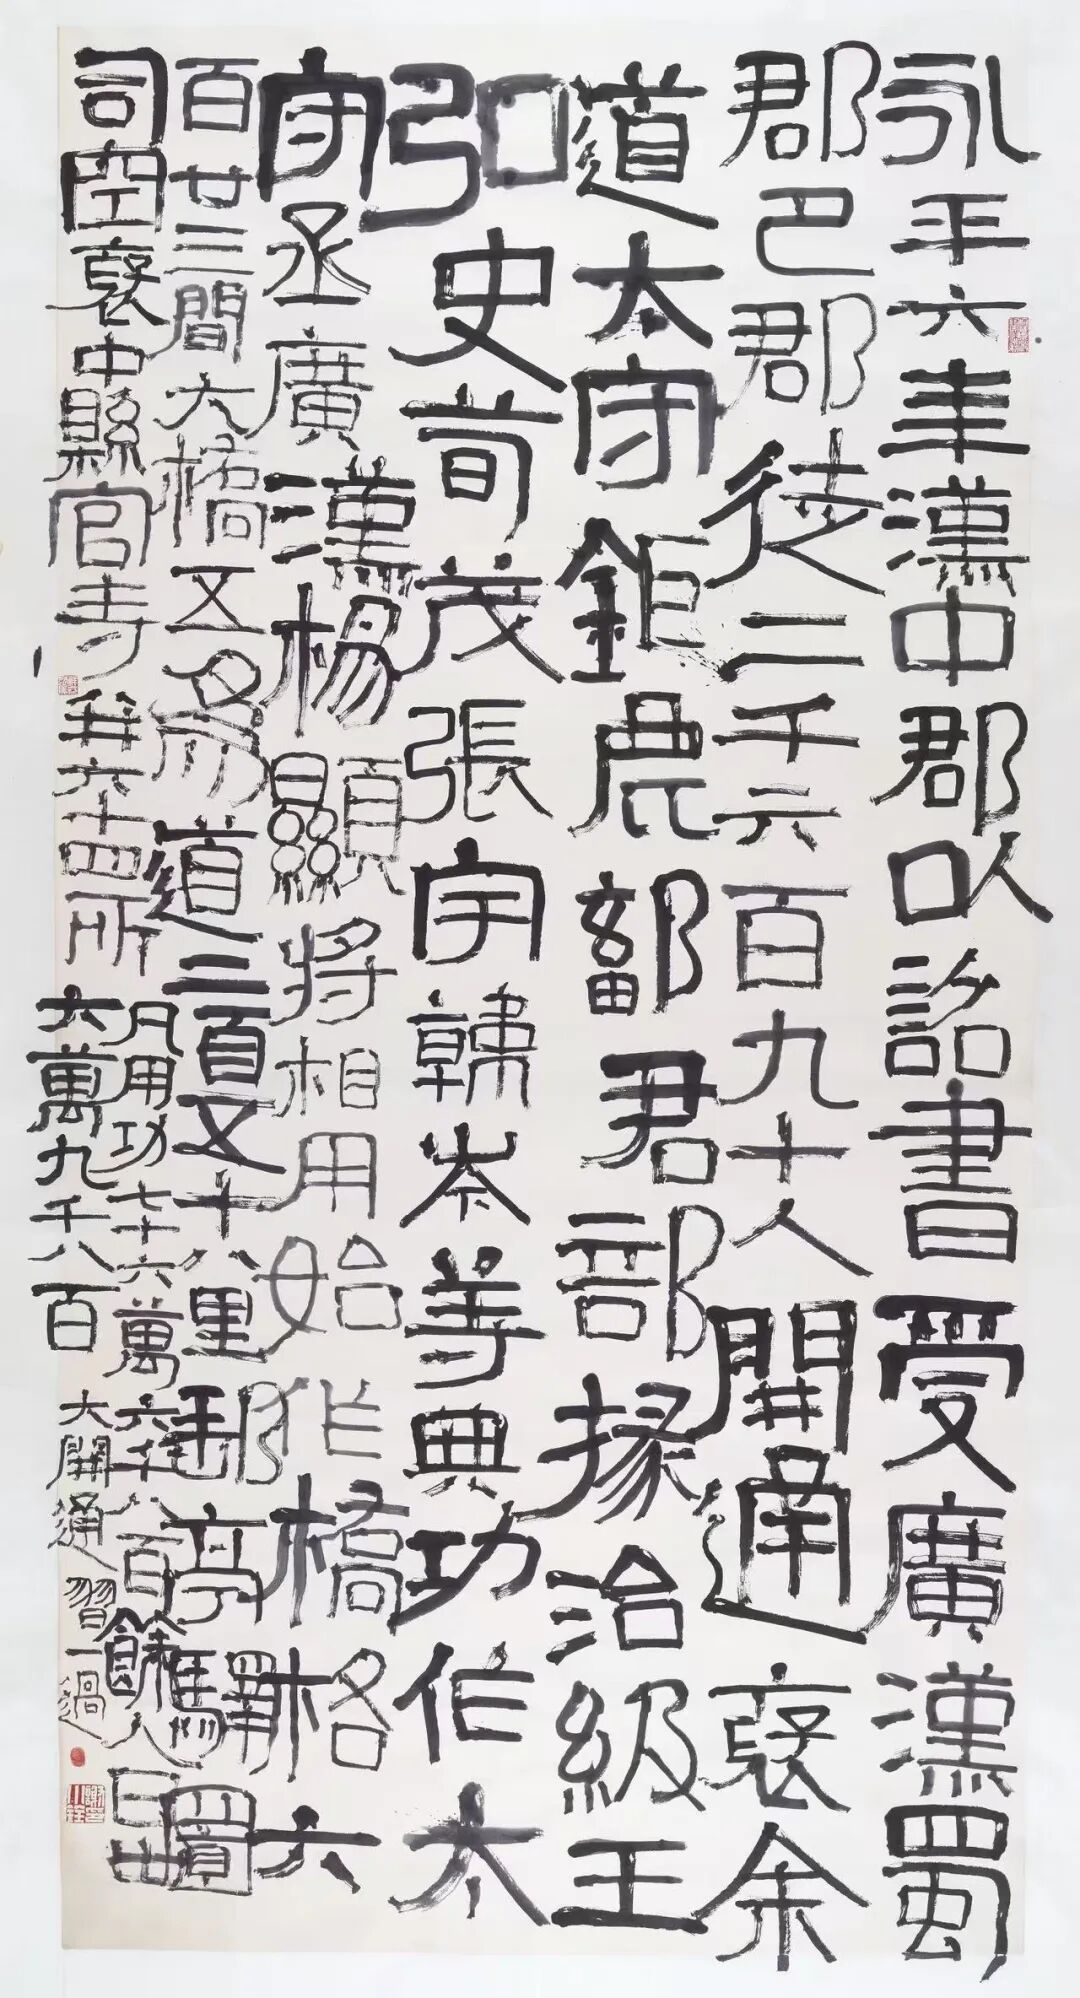 永平六年漢中郡以詔書受廣漢蜀
郡巴郡徒二千六百九十人開通褒余
道太守鉅鹿鄐君部掾治級王
弘史荀茂張宇韓岑等典功作太
守丞廣漢楊顯將相用始作橋格六
百廿三間大橋五為道二百五十八里郵亭驛置
司空褒中縣官寺并六十四所
凡用功七十六萬六千八百餘人瓦卅
六萬九千八百
大開通習一過